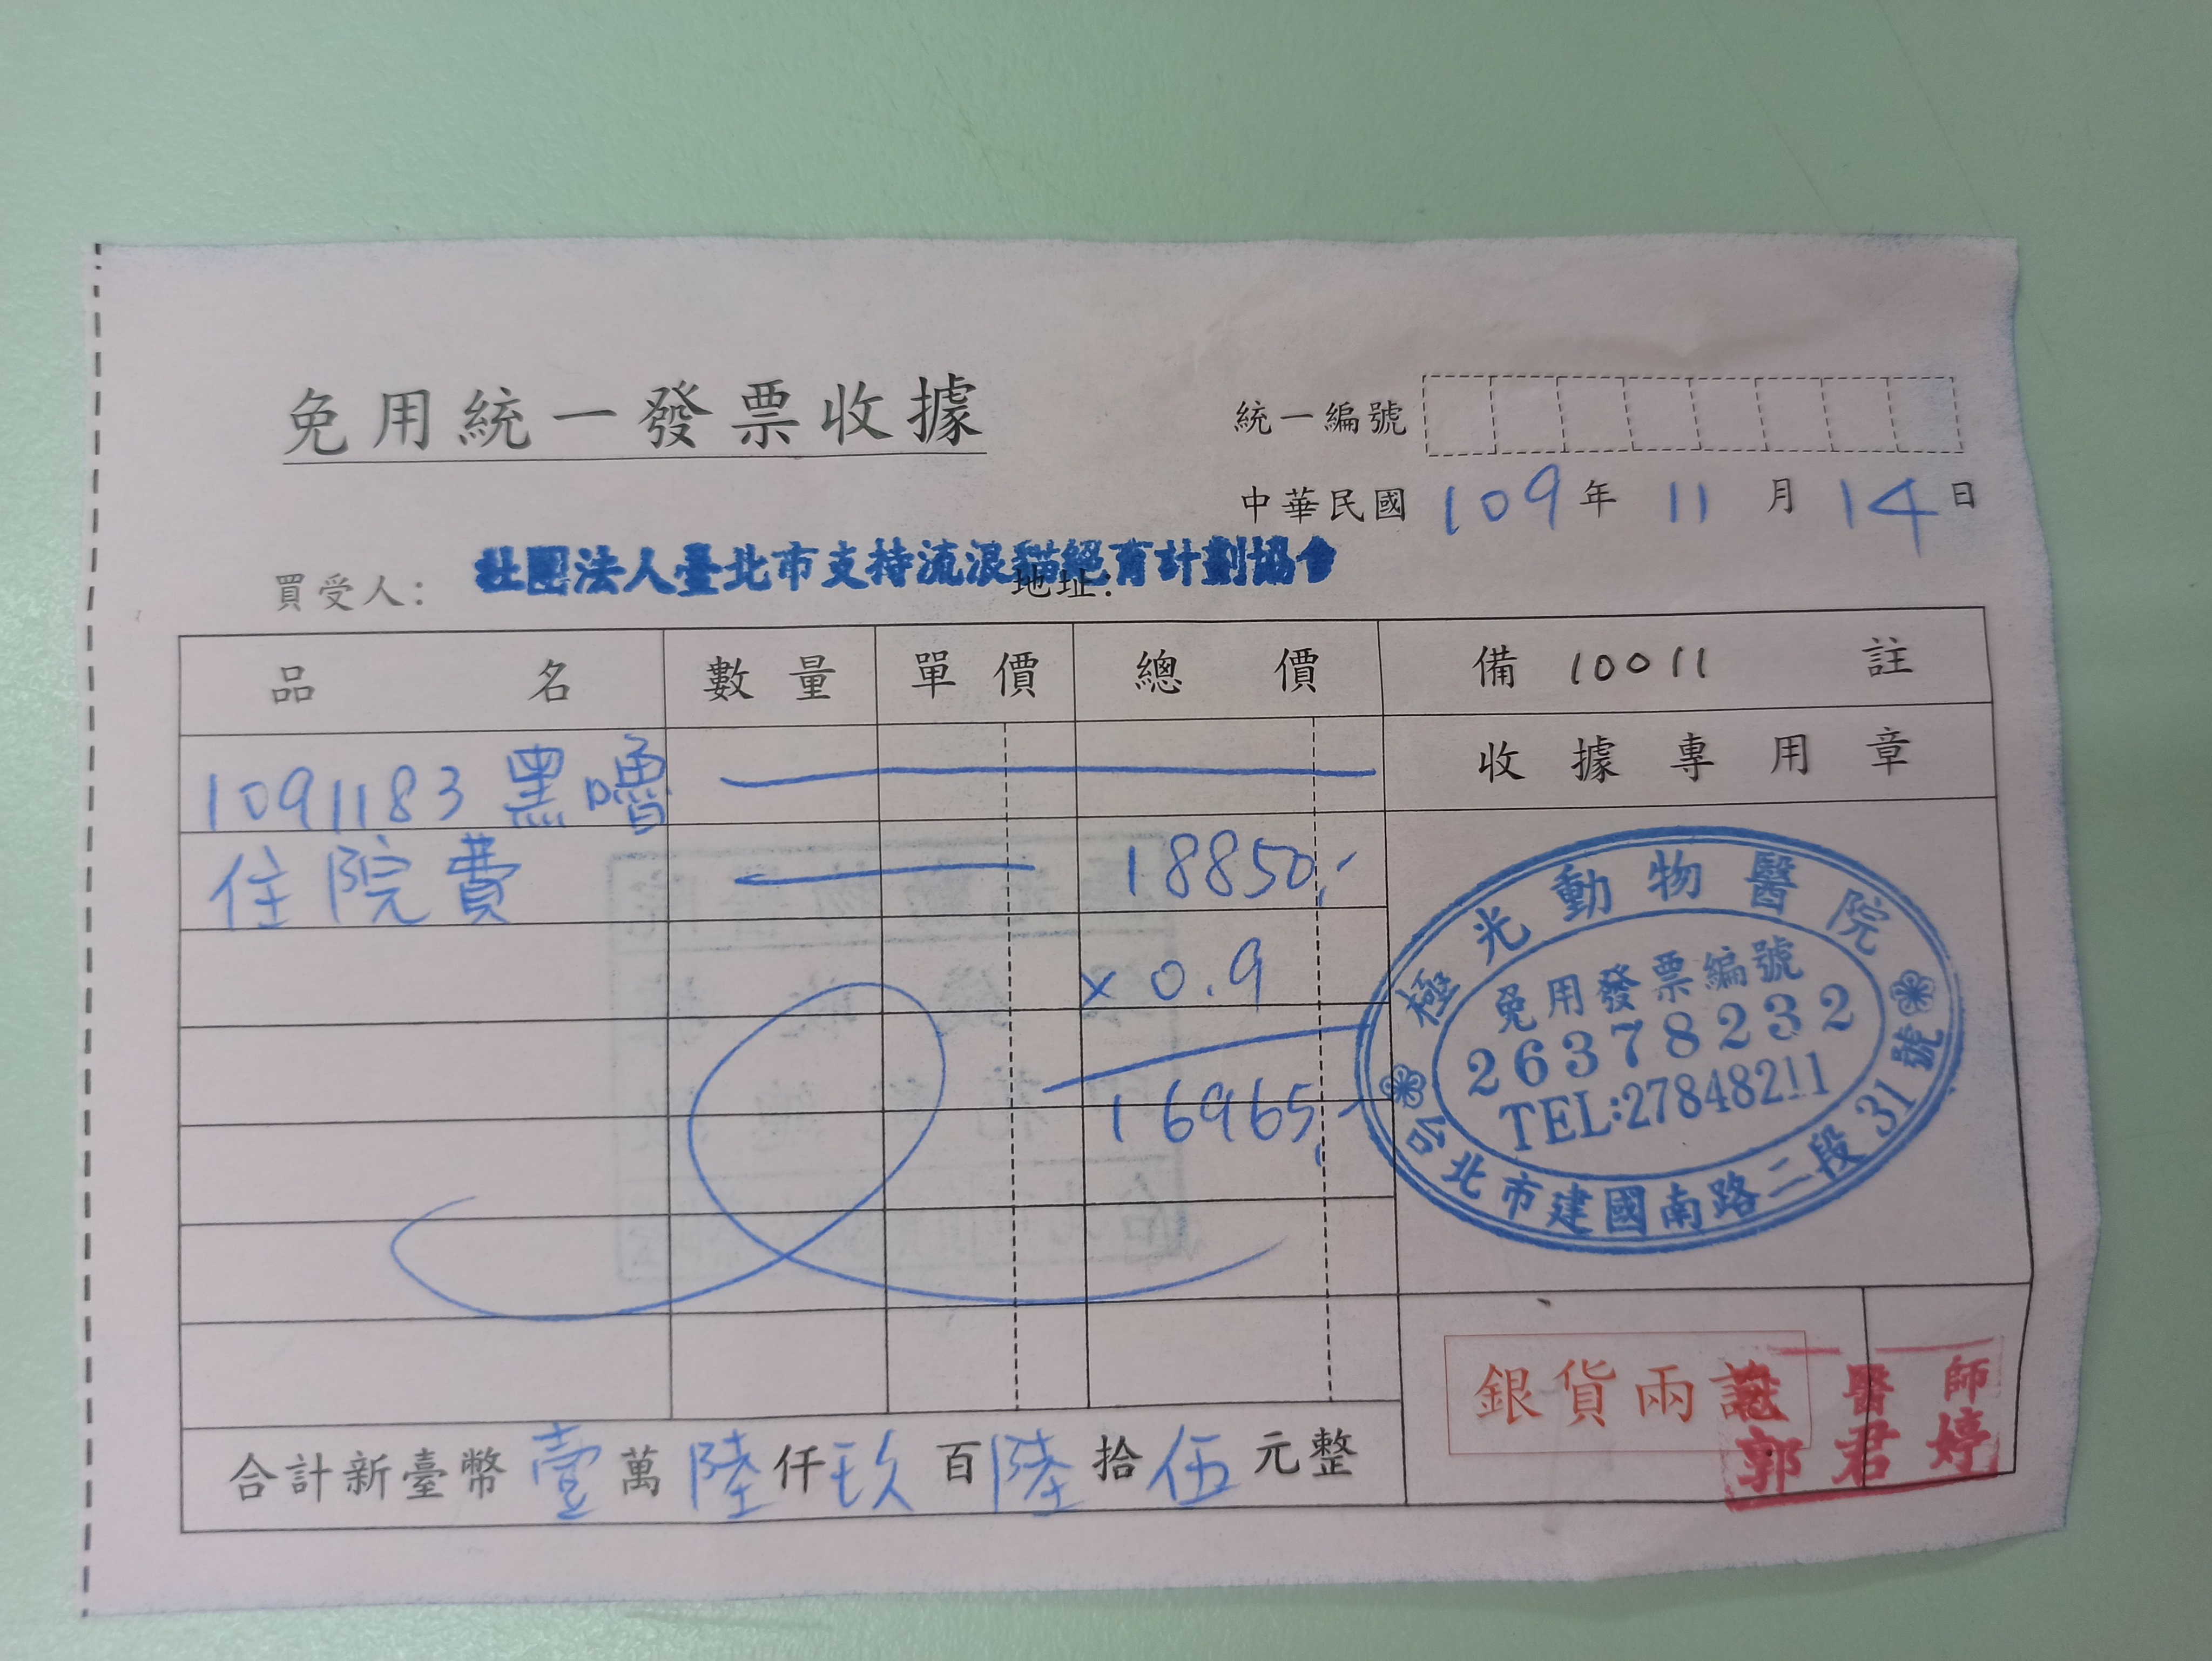 免用統一發票收據
統一編號
中華民國 109 年 11 月 14 日
買受人： 社團法人臺北市支持流浪貓絕育計劃協會
地址：
品名 數量 單價 總價 備 10011 註
收據專用章
1091183 黑嚕
住院費 18850,-
x 0.9
16965,-
極光動物醫院
免用發票編號
26378232
TEL:27848211
台北市建國南路二段31號
合計新臺幣 壹 萬 陸 仟 玖 百 陸 拾 伍 元整
銀貨兩訖
醫師
郭君婷